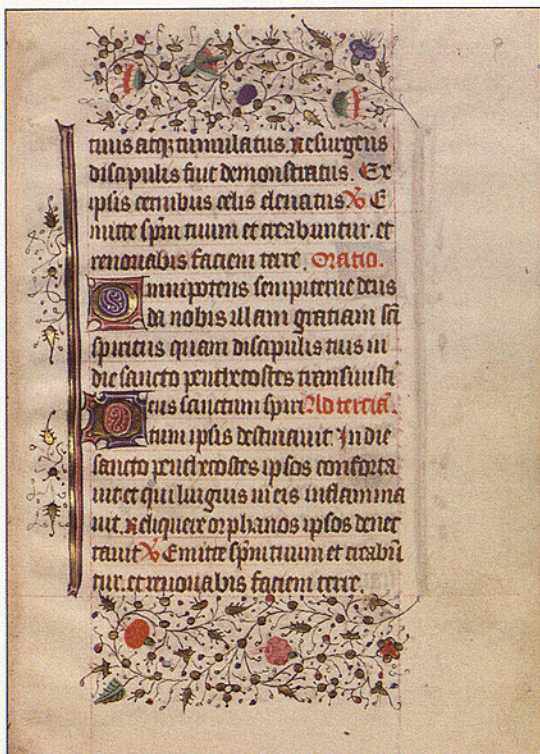 tuus atq; tumulatus. Resurgens
discipulis fuit demonstratus. Ex
ipsis cernibus celis eleuatus ℣ E
mitte spm tuum et creabuntur. et
renouabis faciem terre. Oratio.
Omnipotens sempiterne deus
da nobis illam gratiam scī
spiritus quam discipulis tuis in
die sancto penthecostes transmisisti
Deus sanctum spiri Ad tercia.
tum ipsis destinauit In die
sancto penthecostes ipsos conforta
uit et qui linguis in eis inflamma
uit. Relinquere orphanos ipsos deneg
rauit ℣ Emitte spm tuum et creabū
tur. et renouabis faciem terre.